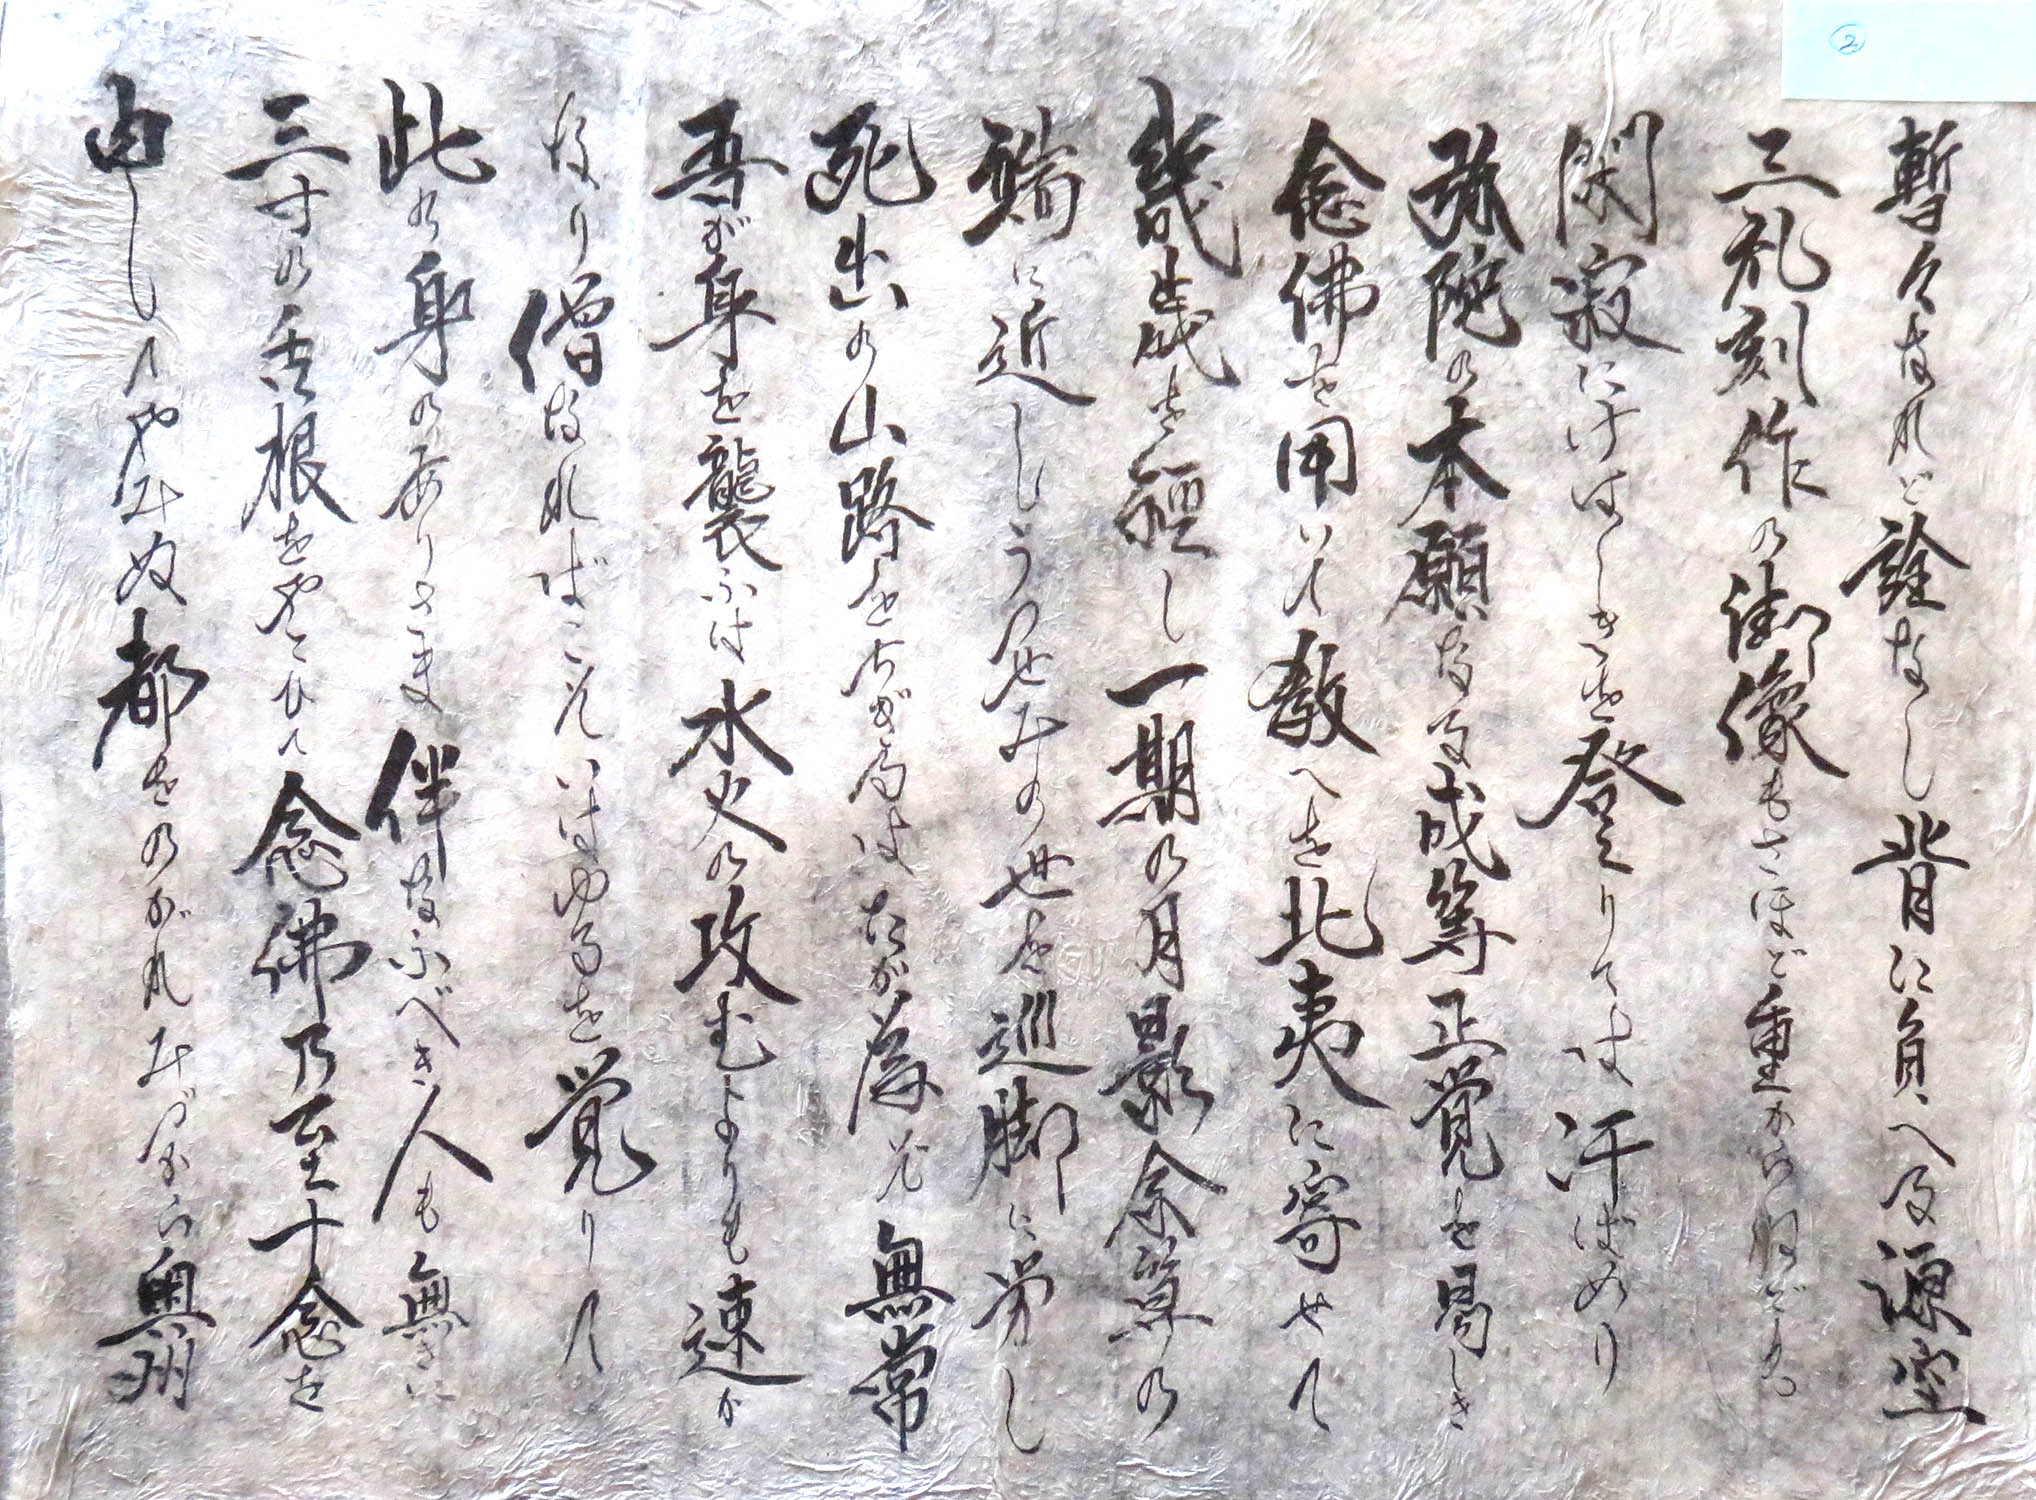 ②
暫くなれど詮なし背に負へる源空
三礼刻作の御像もさほど重からねども
閑寂にけはしきを登りては汗ばめり
弥陀の本願なる成等正覚を曷しき
念佛を用いて教へを北夷に寄せて
幾歳を経し一期の月影余算の
端に近しうつせみの世を巡脚に労し
死出の山路をたがね 無常
吾が身を襲ふは水火の攻むよりも速か
なり僧なればこそいはゆるを覚りて
此の身のありさま伴なふべき人も無きに
三寸の舌根をやとひて念佛乃至十念を
申してやみぬ都をのがれみづから奥州